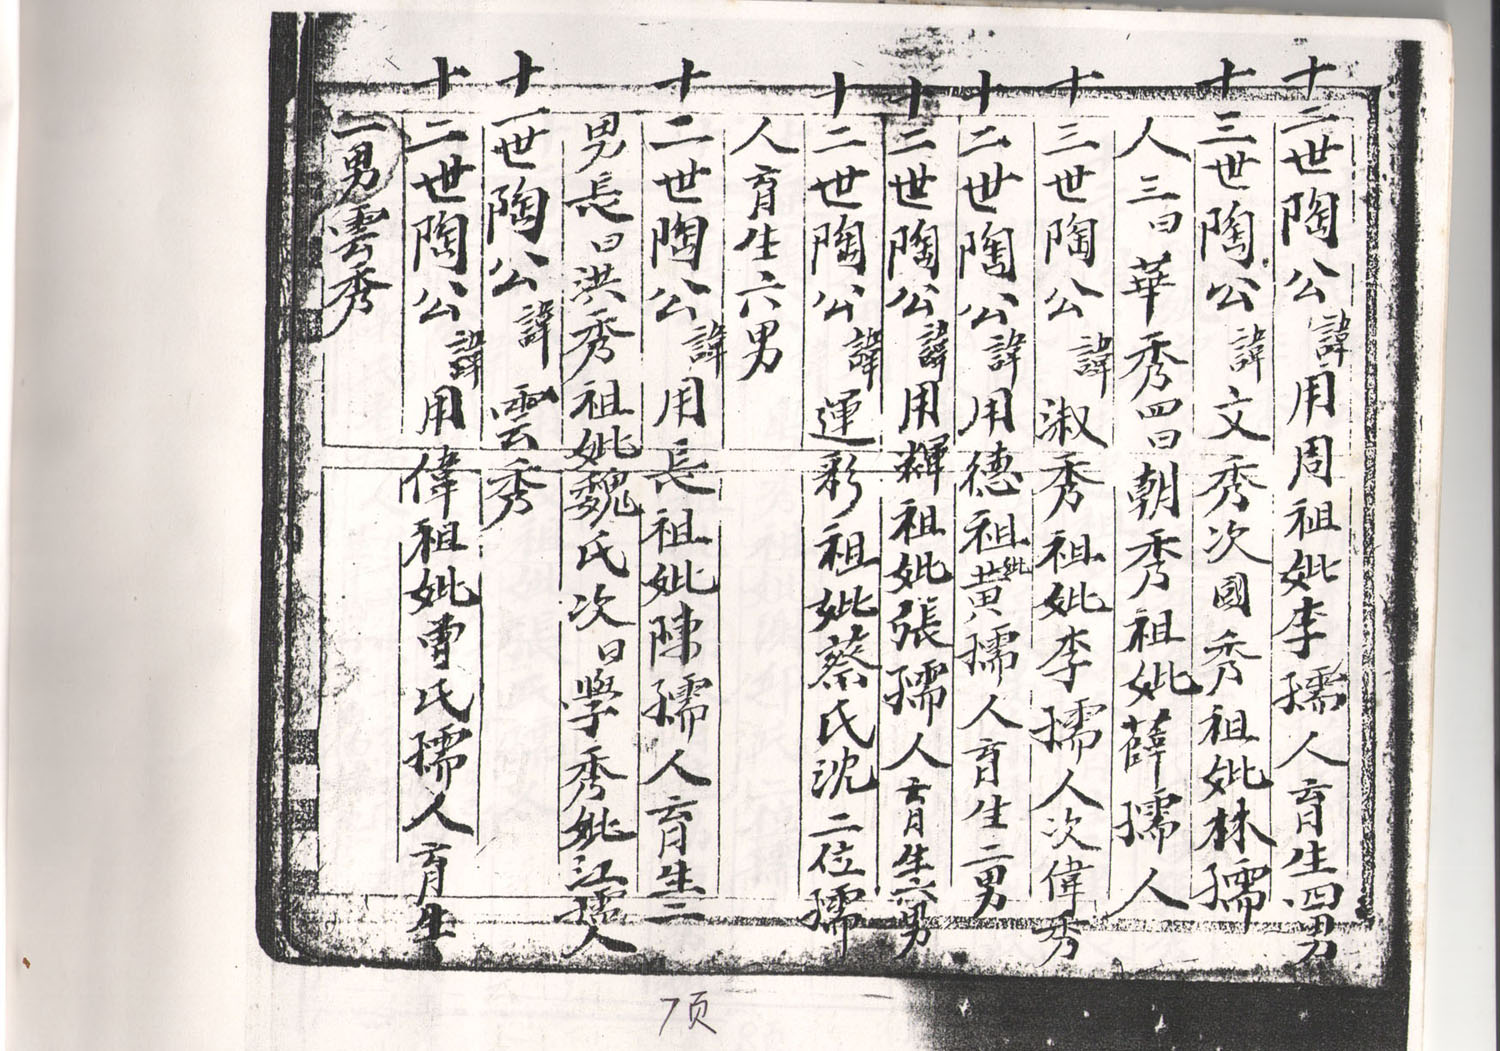 十二世陶公諱用周祖妣李孺人育生四男
十三世陶公諱文秀次國秀祖妣林孺
人三曰華秀四曰朝秀祖妣薛孺人
十三世陶公諱淑秀祖妣李孺人次偉秀
十二世陶公諱用德祖妣黄孺人育生二男
十二世陶公諱用輝祖妣張孺人育生六男
十二世陶公諱運彩祖妣蔡氏沈二位孺
人育生六男
十二世陶公諱用長祖妣陳孺人育生二
男長曰洪秀祖妣魏氏次曰學秀妣江孺人
十一世陶公諱雲秀
十二世陶公諱用偉祖妣曾氏孺人育生
一男雲秀
7页